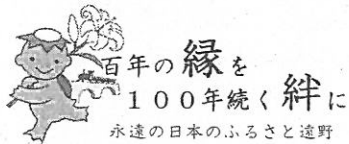 百年の縁を
100年続く絆に
永遠の日本のふるさと遠野